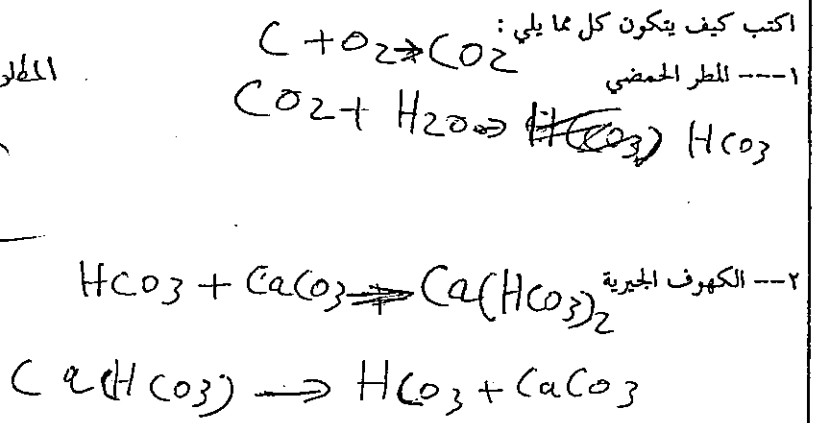 اكتب كيف يتكون كل مما يلي :
C + O2 → CO2
١---- المطر الحمضي
CO2 + H2O → HCO3
٢--- الكهوف الجيرية
HCO3 + CaCO3 → Ca(HCO3)2
Ca(HCO3) → HCO3 + CaCO3